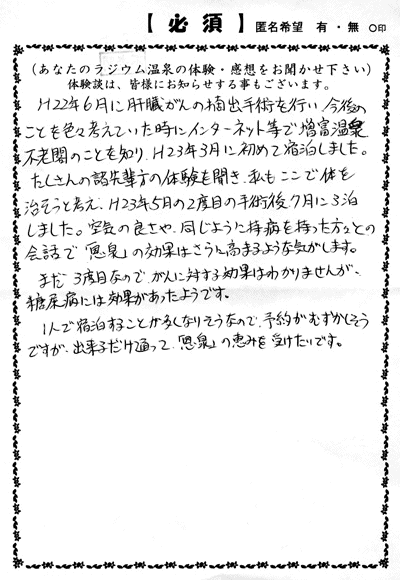 【必須】 匿名希望 有・無 ○印
(あなたのラジウム温泉の体験・感想をお聞かせ下さい)
体験談は、皆様にお知らせする事もございます。
H22年6月に肝臓がんの摘出手術を行い、今後の
ことを色々考えていた時にインターネット等で増富温泉
不老閣のことを知り、H23年3月に初めて宿泊しました。
たくさんの諸先輩方の体験を聞き、私もここで体を
治そうと考え、H23年5月の2度目の手術後7月に3泊
しました。空気の良さや、同じように持病を持った方々との
会話で「恩泉」の効果はさらに高まるような気がします。
まだ3度目なので、がんに対する効果はわかりませんが、
糖尿病には効果があったようです。
1人で宿泊することが多くなりそうなので、予約がむずかしそう
ですが、出来るだけ通って、「恩泉」の恵みを受けたいです。